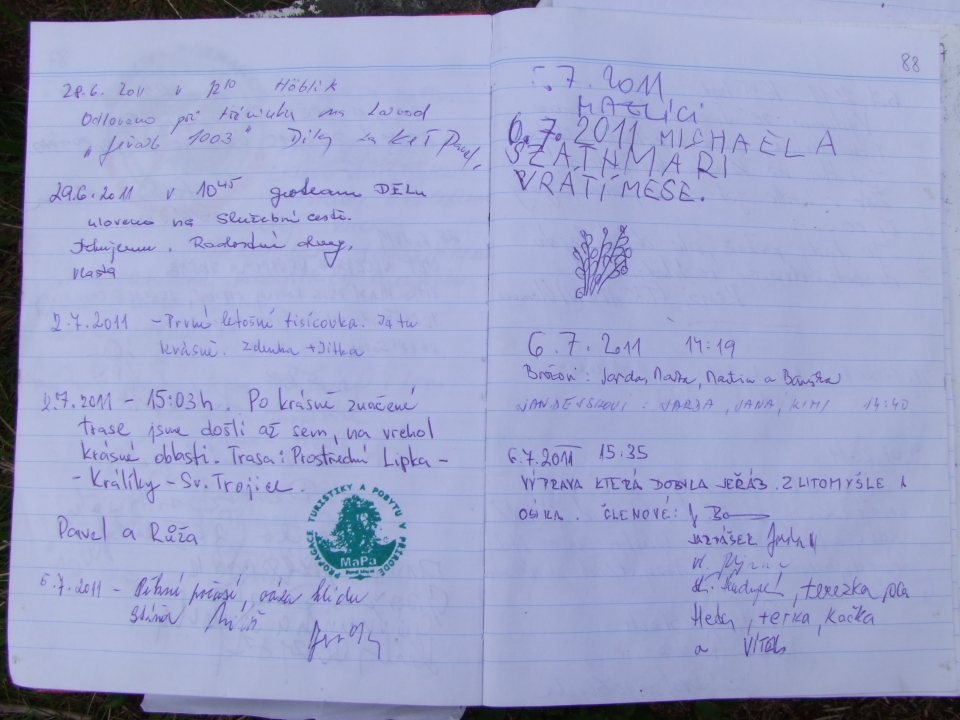 28.6. 2011 v 12¹⁰ Höblik
Odloveno při tréninku na závod
"Jeřáb 1003" Díky za keš Pavel,
29.6.2011 v 10⁴⁵ geoteam DELu
uloveno na služební cestě.
Děkujeme. Radostné dny,
Vlasta
2.7.2011 - První letošní tisícovka. Je tu
krásně. Zdenka + Jitka
2.7.2011 - 15:03h. Po krásně značené
trase jsme došli až sem, na vrchol
krásné oblasti. Trasa: Prostřední Lipka -
- Králíky - Sv. Trojice.
Pavel a Růža
PROPAGACE TURISTIKY A POBYTU V PŘÍRODĚ
MaPa
6.7.2011 - Pěkné počasí, oáza klidu
88
.7.2011
MAZLÍCI
6.7.2011 MICHAELA
SZATHMARI
VRÁTÍMESE.
6.7.2011 14:19
Brožovi: Jarda, Martin a
: JARDA, JANA, KIMI 14:40
6.7.2011 15:35
VÝPRAVA KTERÁ DOBYLA JEŘÁB. Z LITOMYŠLE A
OSÍKA. ČLENOVÉ:
terezka
terka, Kačka
a VÍTEK